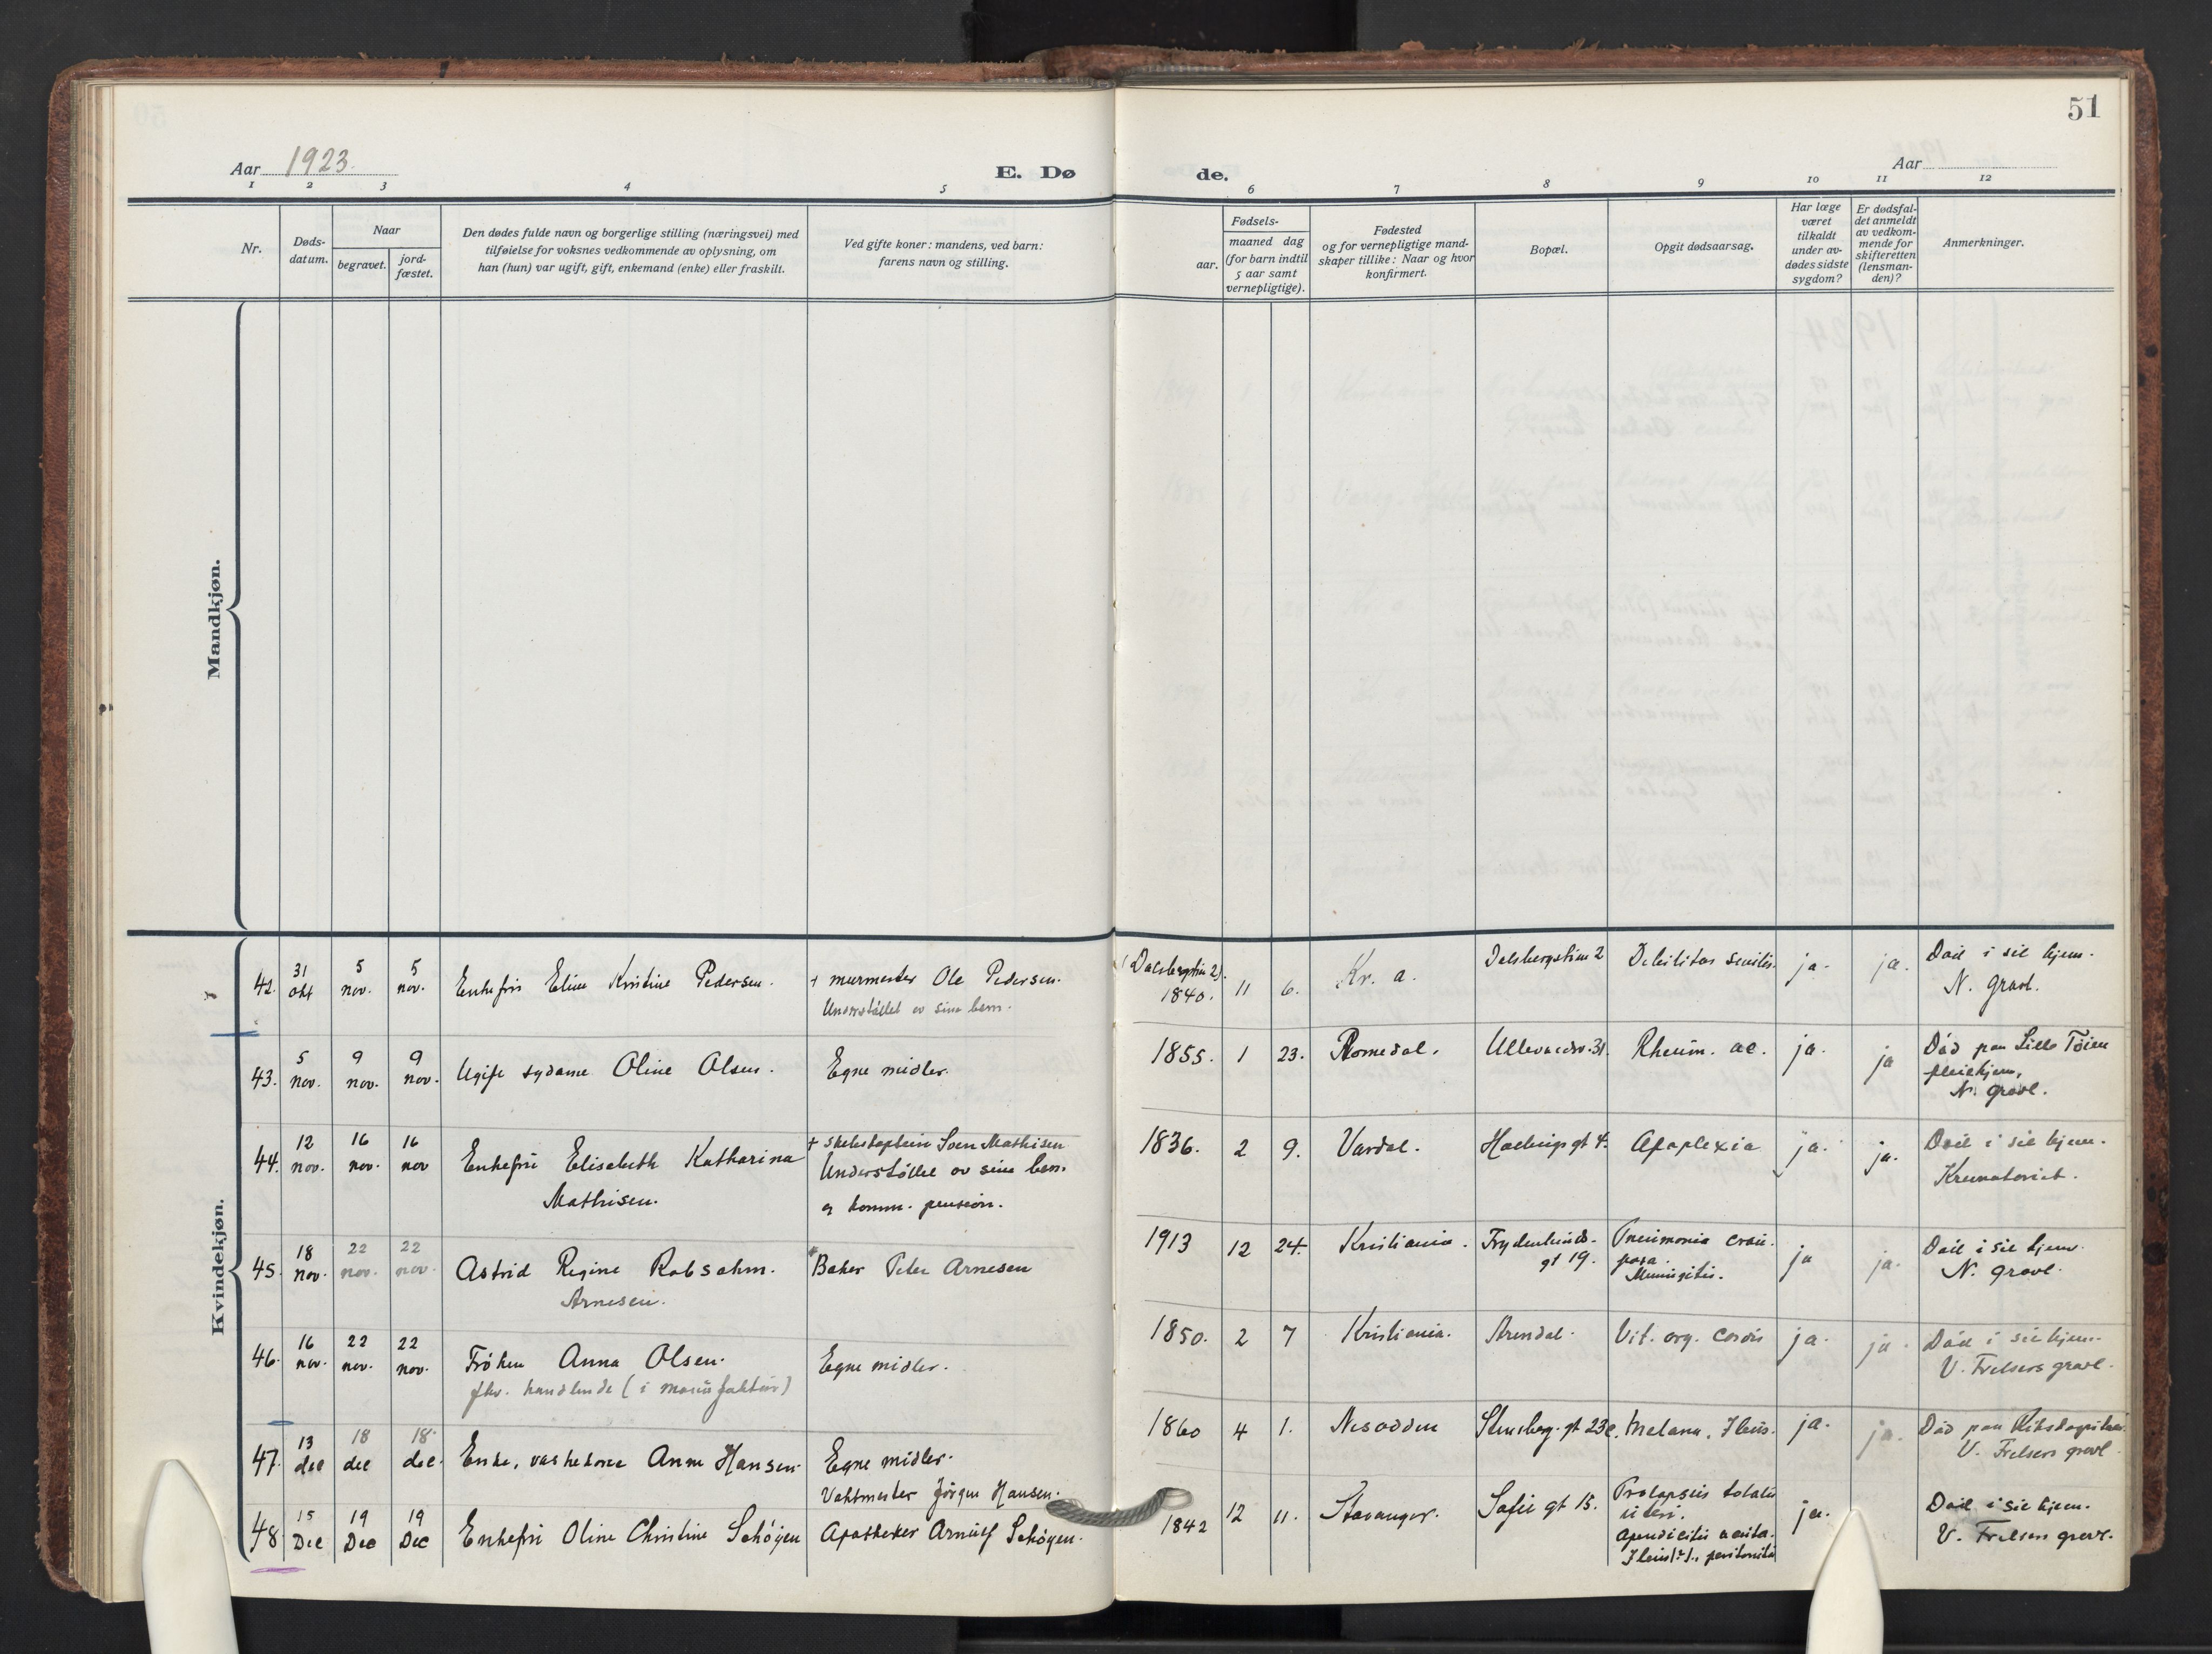 51
Aar 1923.
E. Døde.
Aar
1 2 3 4 5 6 7 8 9 10 11 12
Nr.
Døds-
datum.
Naar
begravet.
jord-
fæstet.
Den dødes fulde navn og borgerlige stilling (næringsvei) med
tilføielse for voksnes vedkommende av oplysning, om
han (hun) var ugift, gift, enkemand (enke) eller fraskilt.
Ved gifte koner: mandens, ved barn:
farens navn og stilling.
Fødsels-
aar.
maaned dag
(for barn indtil
5 aar samt
vernepligtige).
Fødested
og for vernepligtige mand-
skaper tillike: Naar og hvor
konfirmert.
Bopæl.
Opgit dødsaarsag.
Har læge
været
tilkaldt
under av-
dødes sidste
sygdom?
Er dødsfal-
det anmeldt
av vedkom-
mende for
skifteretten
(lensman-
den)?
Anmerkninger.
Mandkjøn.
Kvindekjøn.
42. 31 okt 5 nov. 5 nov. Enkefru Eline Kristine Pedersen. + murmester Ole Pedersen.
Understøttet av sine barn.
(Dalsbergstien 2).
1840. 11 6. Kr. a. Dalsbergstien 2 Debilitas senilis. ja. ja. Død i sit hjem.
N. gravl.
43. 5 nov. 9 nov. 9 nov. Ugift sydame Oline Olsen. Egne midler.
1855. 1 23. Romedal. Ullevaalsv. 31. Rheum. ac. ja. ja Død paa Lille Tøien
pleiehjem,
N. gravl.
44. 12 nov. 16 nov. 16 nov Enkefru Elisabeth Katharina
Mathisen.
+ skibskaptein Soen Mathisen
Understøttet av sine barn
og komm. pension.
1836. 2 9. Vardal. Holbergs gt 4. Apoplexia ja. ja. Død i sit hjem.
Krematoriet.
45. 18 nov. 22 nov. 22 nov. Astrid Regine Robsahm.
Arnesen.
Baker Peter Arnesen
1913 12 24. Kristiania. Frydenlunds-
gt 19. Pneumonia crou-
posa.
Meningitis. ja ja. Død i sit hjem.
N. gravl.
46. 16 nov. 22 nov. 22 nov. Frøken Anna Olsen.
fhv. handlende (i manufaktur)
Egne midler.
1850. 2 7 Kristiania. Arendal. Vit. org. cordis ja. ja. Død i sit hjem.
V. Frelsers gravl.
47. 13 dec 18 dec 18 dec. Enke, vaskekone Anne Hansen. Egne midler.
Vaktmester Jørgen Hansen.
1860 4 1. Nesodden Stensberg. gt 23c. Melana, Ileus. ja. ja. Død paa Rikshospitalet.
V. Frelsers gravl.
48 15 Dec 19 Dec 19 Dec Enkefru Oline Christine Schøyen Apotheker Arnulf Schøyen.
1842 12 11. Stavanger. Sofie gt 15. Prolapsus totalis
uteri.
apendicitis acuta.
Ileus(?), peritonitis ja. Død i sit hjem.
V. Frelsers gravl.